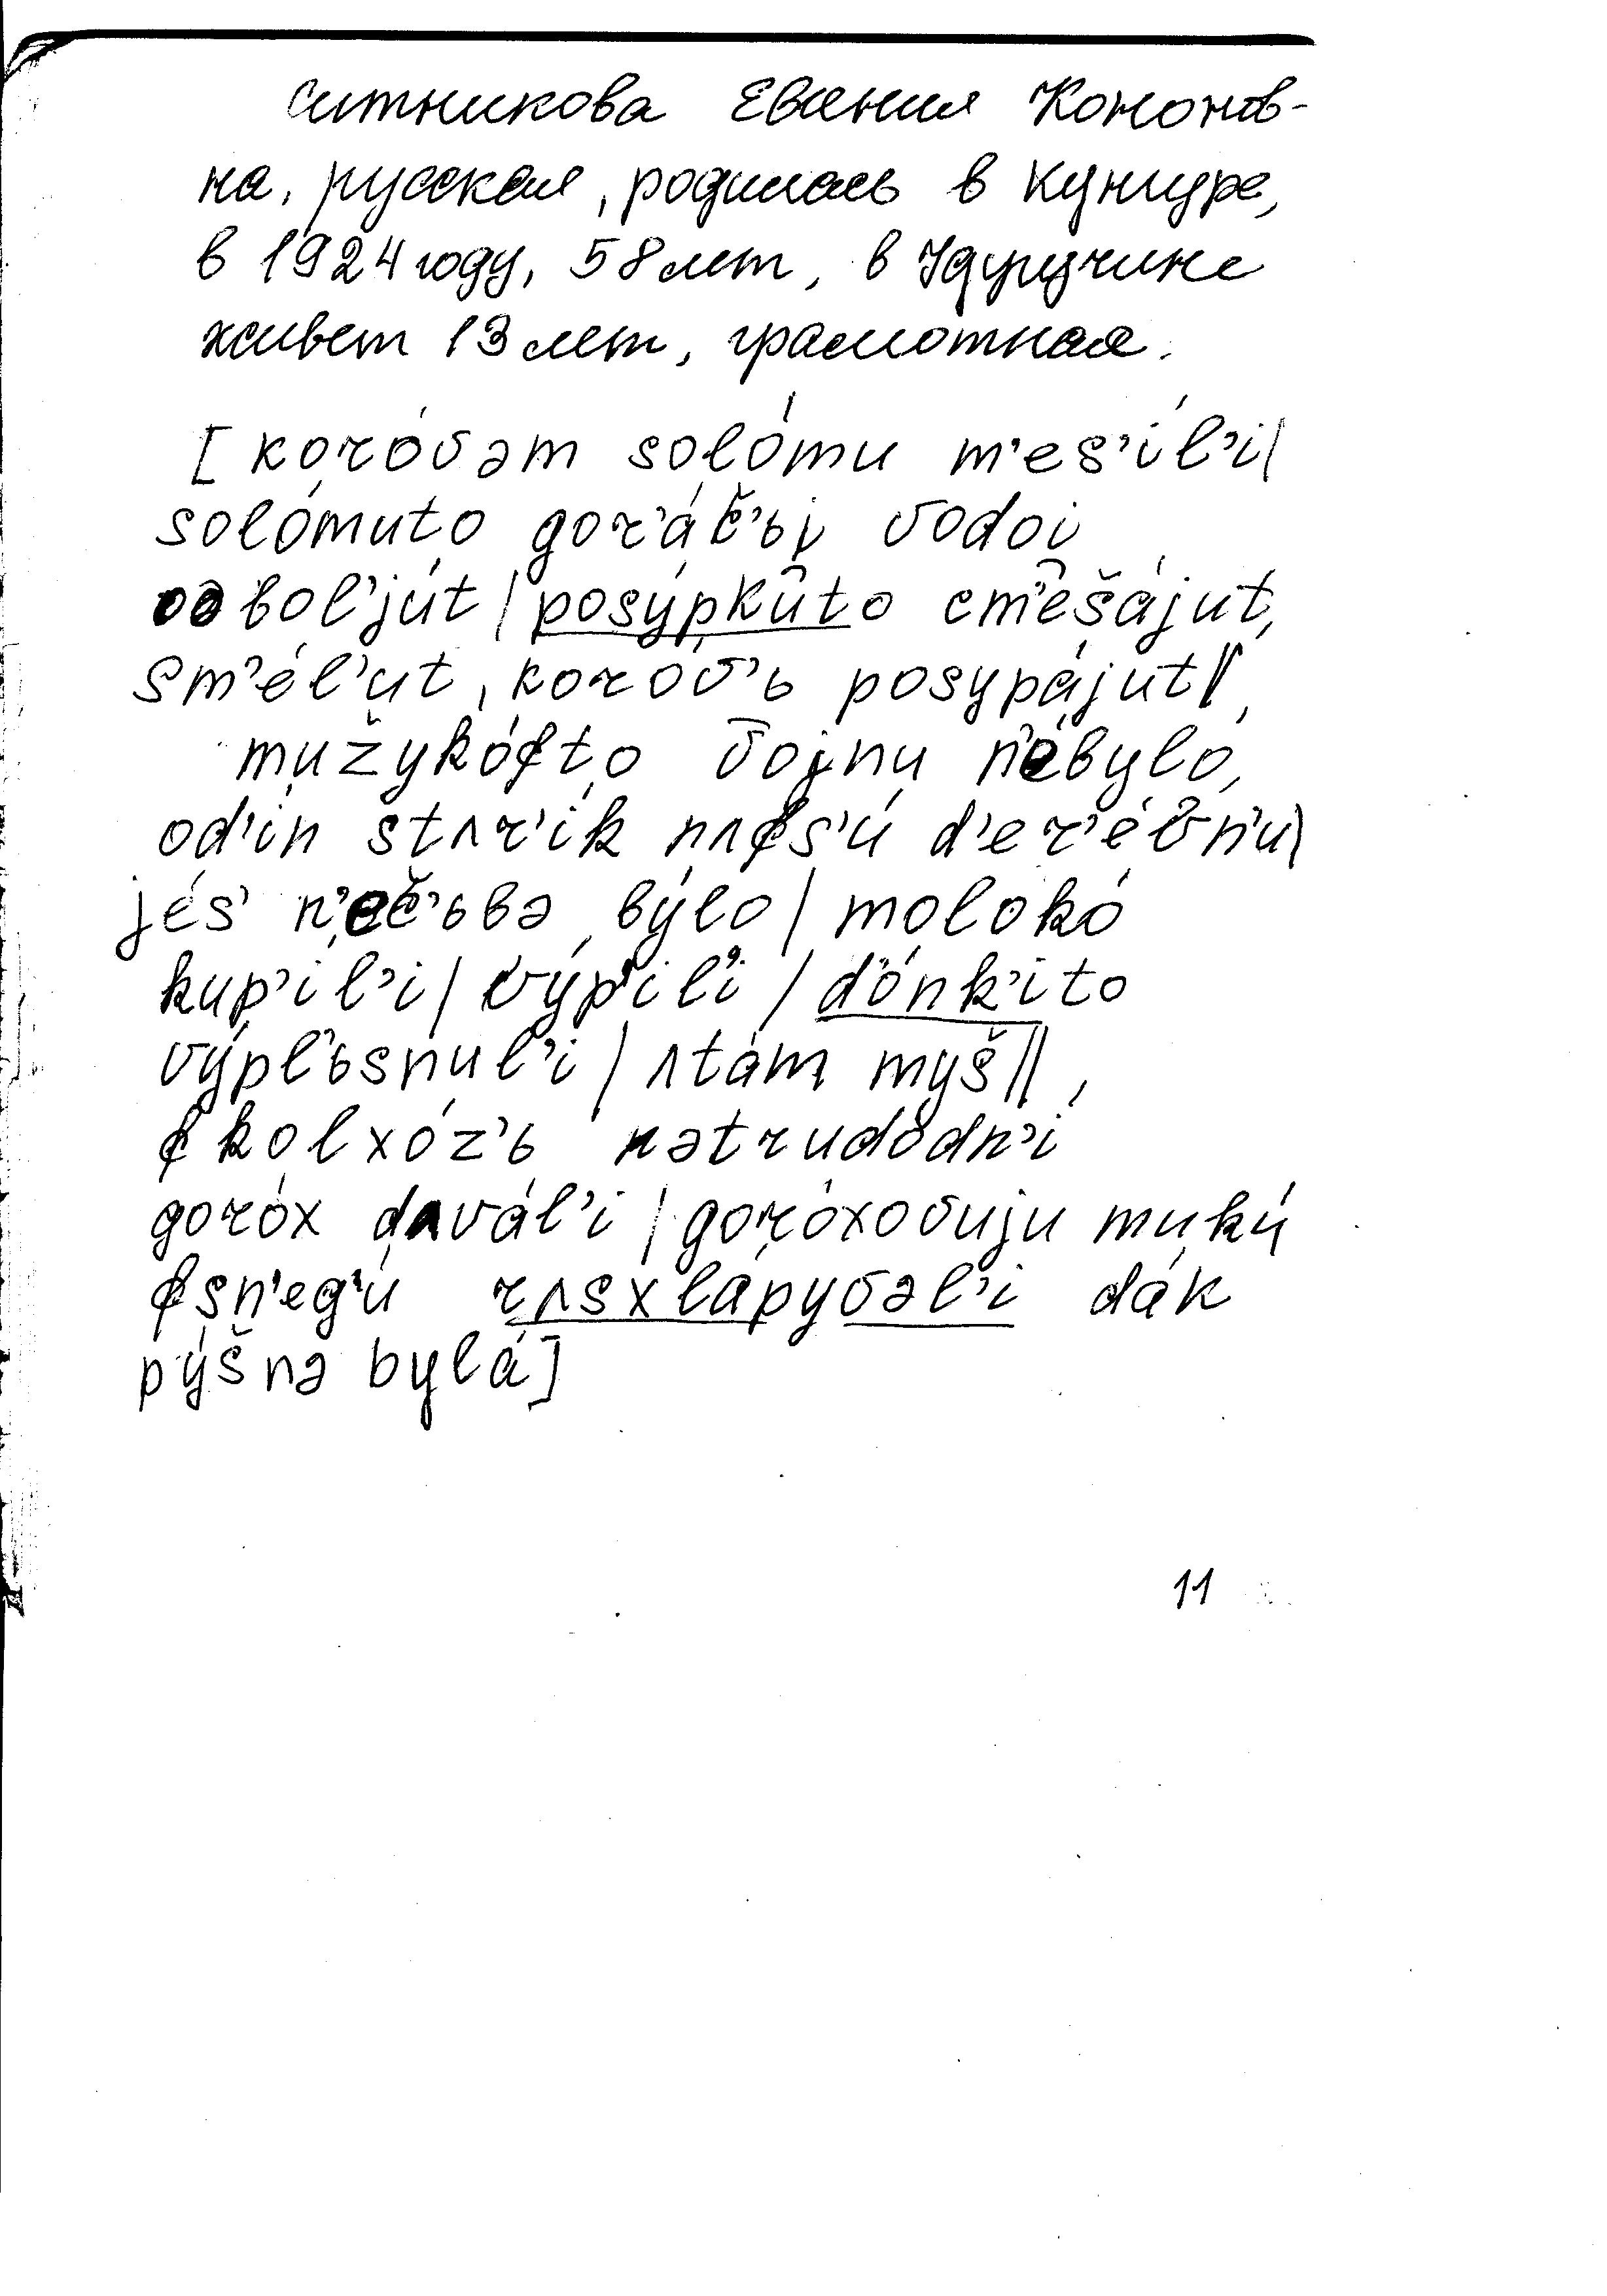 Ситникова Евгения Кононов-
на, русская, родилась в Кунгуре,
в 1924 году, 58 лет, в
живет 13 лет, грамотная.
[koróvəm solómu m'es'íl'i|
solómuto gor'áč'ьi̯ vodoi̯
obol'jút | posýpkuto sm'ešájut,
sm'él'ut, korov'ь posypájut||
mužykófto vojnu n'ébylo,
od'ín stʌr'ík nʌfs'ú d'er'évn'u|
jés' n'eč'ьvə býlo | molokó
kup'íl'i | výp'il'i | d'ónk'ito
výpl'ьsnul'i | ʌtám myš||
f kolxóz'ь nətrudodn'í
goróx dʌvál'i | goróxovuju mukú
fsn'eg'ú rʌsxlápyvəl'i dák
pýšnə bylá]
11